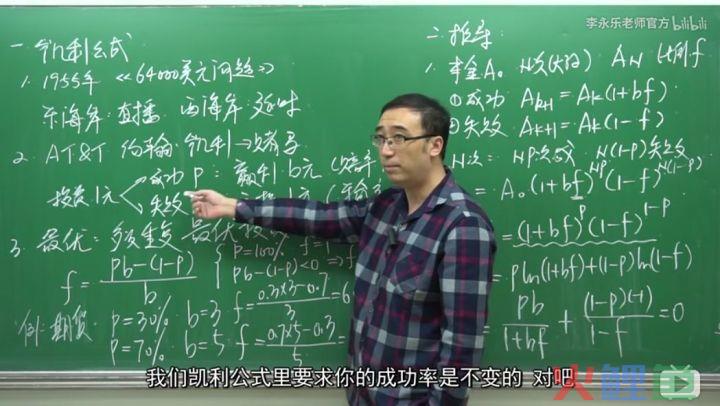 李永乐老师官方 bilibili
一. 凯利公式
1. 1955年 《64000美元问题》
东海岸:直播 西海岸:延时
2. AT&T 约翰·凯利→赌马
投资1元 成功 P: 赢利b元 (赔率
失败
3. 最优: 多次重复 最优投
f = pb-(1-p) / b
P=100% f=1
pb-(1-p)<0 ⇒
例: 期货 P=30% b=3 f= 0.3×3-0.7 / 3 =6
P=70% b=5 f= 0.7×5-0.3 / 5
二. 推导
1. 本金A₀ N次(大) A_N 比例f
①成功 A_{k+1} = A_k(1+bf)
②失败 A_{k+1} = A_k(1-f)
N次: NP次成 N(1-P)失败
= A₀(1+bf)^{NP}(1-f)^{N(1-P)}
= (1+bf)^P(1-f)^{1-P}
pln(1+bf)+(1-p)ln(1-f)
pb / 1+bf + (1-p)(-1) / 1-f =0
我们凯利公式里要求你的成功率是不变的 对吧
火鲤鱼